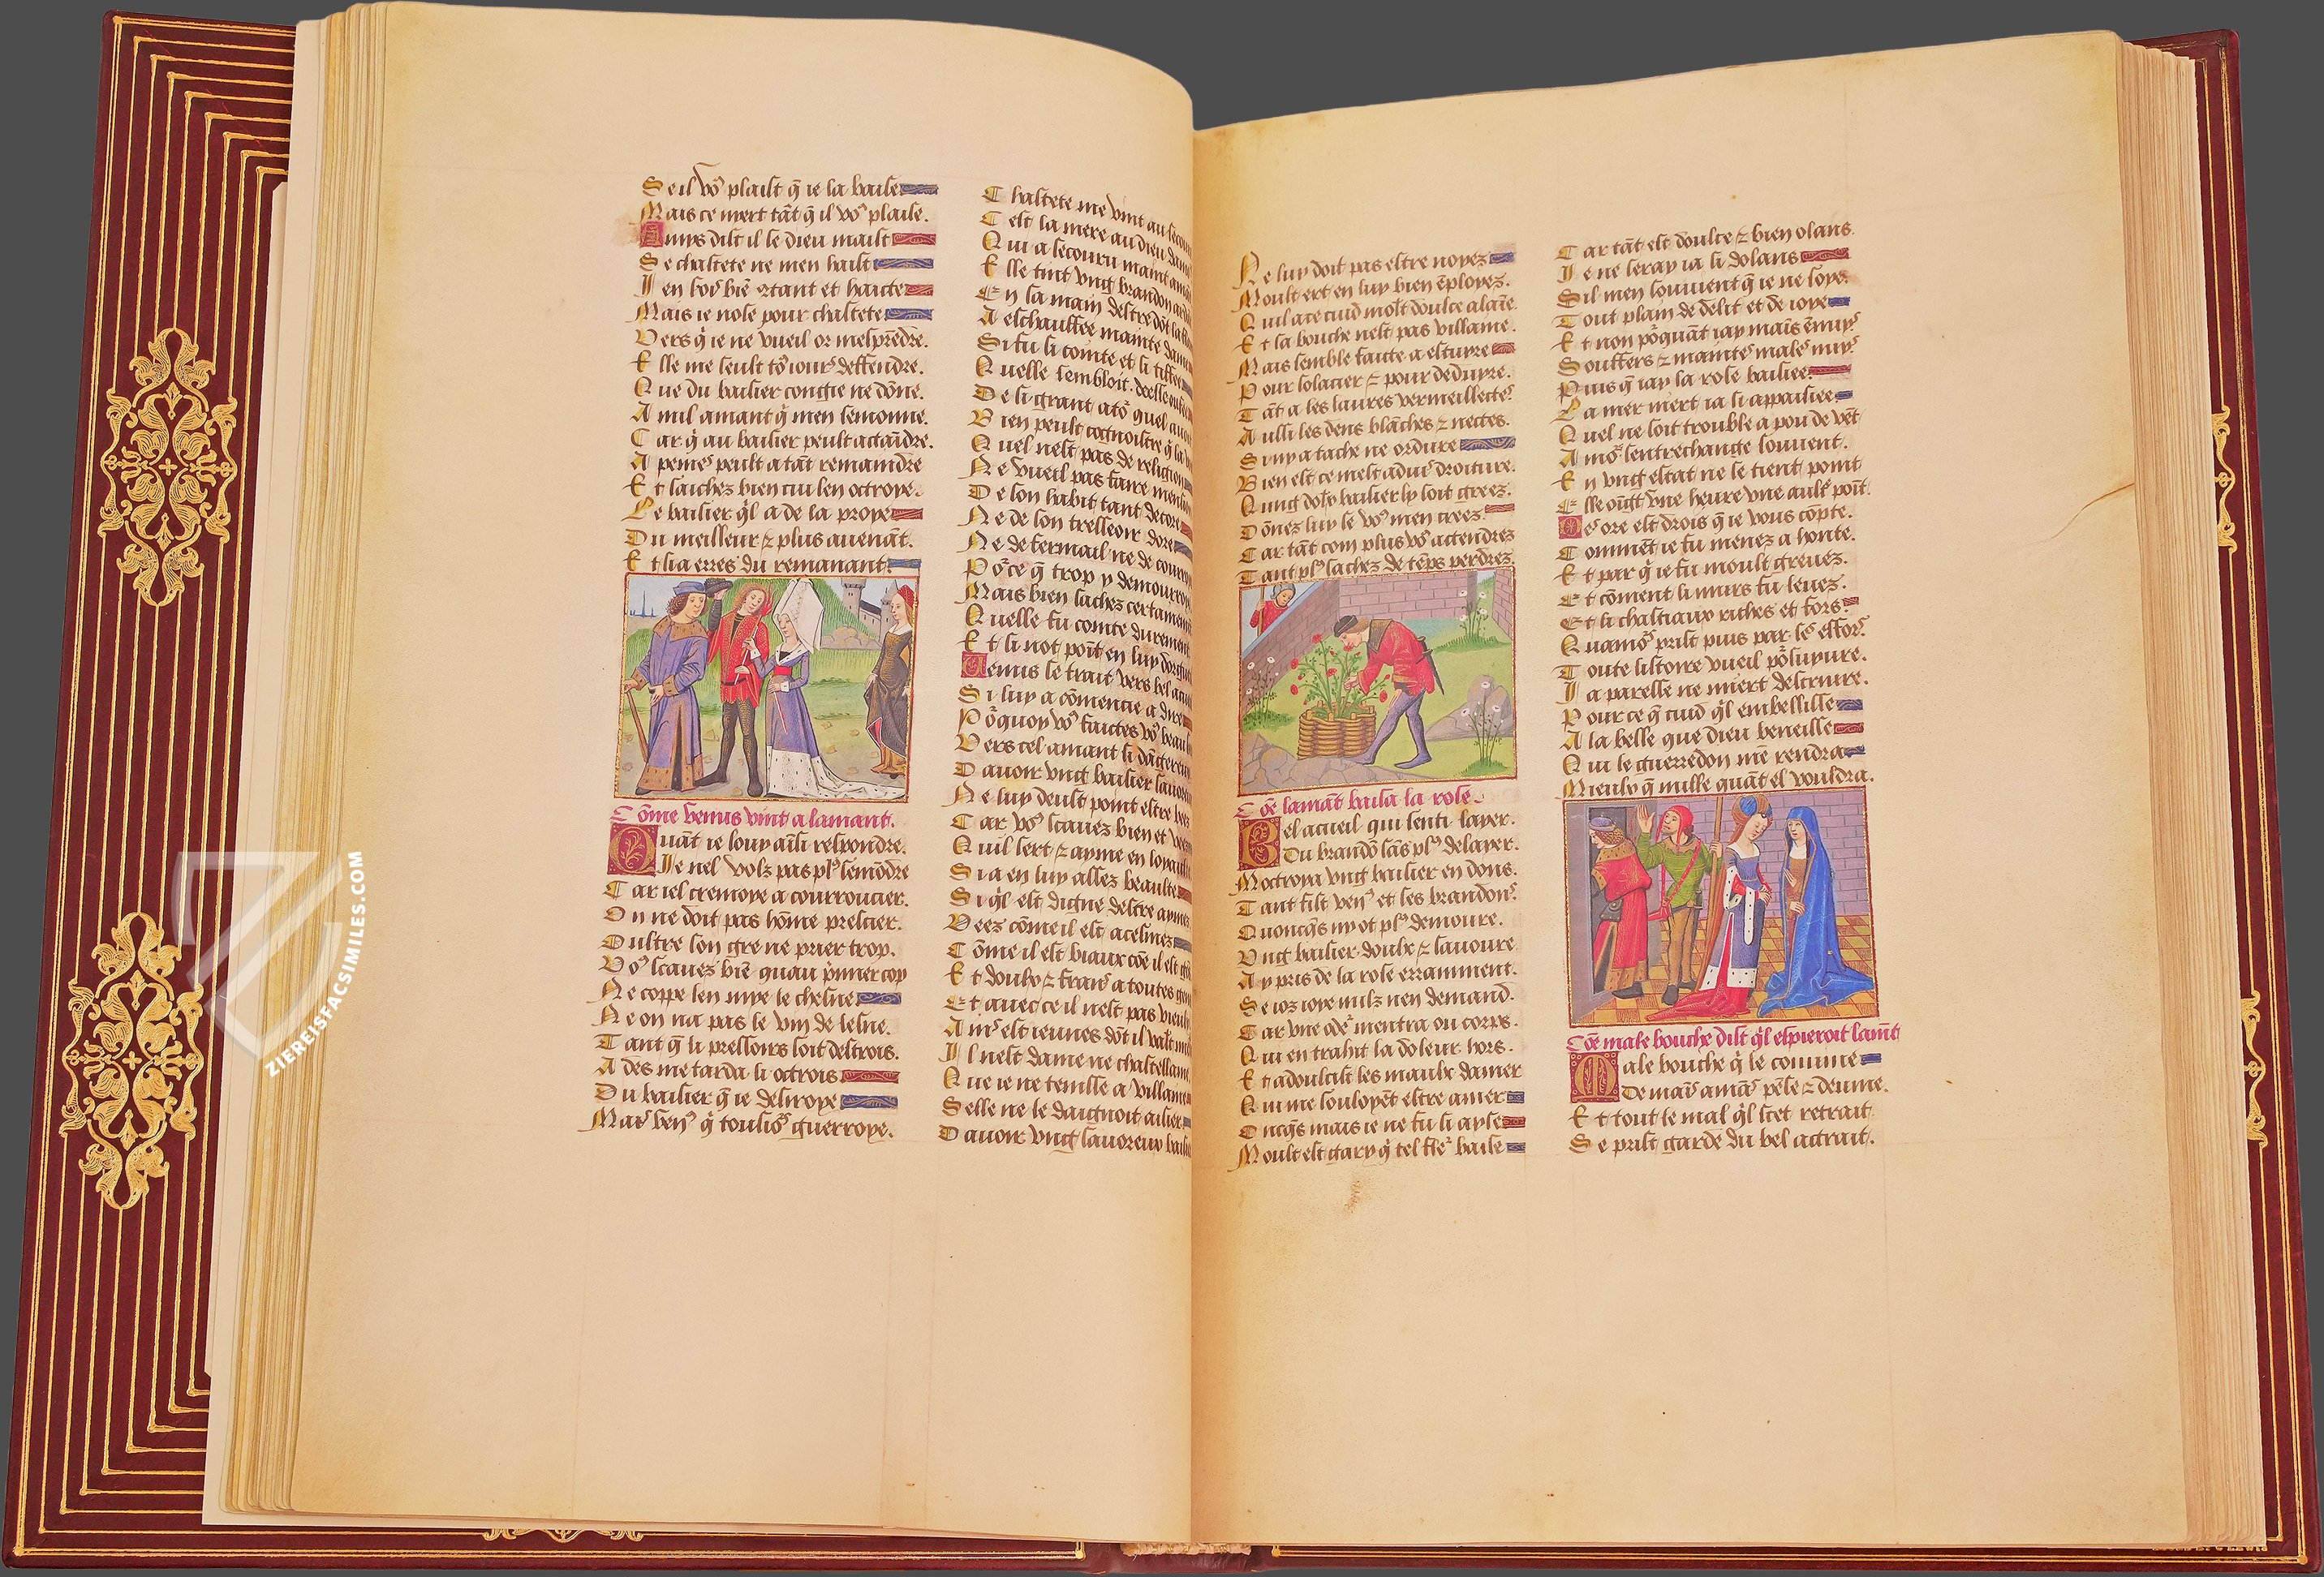 Se il vo⁹ plaist q̄ ie la baise
Mais ce niert tāt q̄ il vo⁹ plaise.
Amys dist il se dieu maist
Se chastete ne men haist
Mais ie nose pour chastete
Vers q̇ ie ne vueil or mesprēdre.
Elle me seult to⁹ iours deffendre.
Que du baisier congie ne dōne.
A nul amant q̇ men semonne.
Car q̇ au baisier peult actaīdre.
A peines peult a tāt remaindre
Et saichez bien cui len octroye.
Le baisier q̇l a de la proye
Du meilleur ⁊ plus auenāt.
Et si a erres du remanant.
Cōme venus vint a lamant.
Quāt ie louy aīsi respondre.
Je nel volz pas pl⁹ semōdre
Car iel cremoye a courroucier.
On ne doit pas hōme presser.
Oultre son gre ne prier trop.
Vo⁹ scauez biē quau p̄mier cop
Ne coppe len mye le chesne
Ne on na pas le vin de lesne.
Tant q̄ li pressoirs soit destrois.
Adēs me tarda li octrois
Du baisier q̄ ie desiroye
Mais ven⁹ q̇ tousiōs guerroye.
Chastete me vint au secours
Cest la mere au dieu damo
Qui a secouru maint amāt
Elle tint vng brandon ardāt
En sa main destre dōt la fla
A eschauffee mainte dame
Si fu si cointe et si tiffee
Quelle sembloit deesse ou fee
De si grant atō quel auoit
Bien peult cognoistre q̇ la v
Quel nest pas de religion
Ne vueil pas faire mencion
De son habit tant decore
Ne de son tressoir dore
Ne de fermail ne de courroye
Pōce q̄ trop y demourroye
Mais bien sachez certainemēt
Quelle fu cointe durement
Et si not poīt en luy dorgueil
Venus se trait vers bel acueil
Si luy a cōmencie a dire
Pōquoy vo⁹ faictes vo⁹ beau
Vers cel amant si dāgereux
Dauoir vng baisier sauoureux
Ne luy deust point estre
Car vo⁹ scauez bien et veez
Quil sert ⁊ ayme en loyaulte
Si a en luy assez beaulte
Si q̇l est digne destre aymez
Veez cōme il est acesmez
Cōme il est biaux cōe il est
Et doulx ⁊ frans a toutes gens
Et auec ce il nest pas vieulx
Ains est ieunes dōt il vault mieulx
Il nest dame ne chastellaine
Que ie ne tenisse a villaine
Selle ne le daignoit aisier
Dauoir vng sauoreux baisier
Ne luy doit pas estre noyez
Moult ert en luy bien ēployez.
Quil a ce cuid moult doulce alaīe.
Et sa bouche nest pas villaine.
Mais semble faicte a estuyre
Pour solacier ⁊ pour deduyre.
Tāt a les laures vermeillectes
Aussi les dens blāches ⁊ nectes.
Si ny a tache ne ordure
Bien est ce mest aduis droiture.
Qung dolx baisier ly soit greez.
Dōnez luy se vo⁹ men creez.
Car tāt com plus vo⁹ actendrez
Tant pl⁹ sachez de tēps perdrez.
Cōe lamāt baisa la rose.
Bel acueil qui senti layer.
Du brandō sās pl⁹ delayer.
Moctroya vng baisier en dons.
Tant fist ven⁹ et ses brandons
Quoncq̄s ny ot pl⁹ demoure.
Vng baisier doulx ⁊ sauoure
Ay pris de la rose erramment.
Se ioz ioye nulz nen demand.
Car vne odeʳ mentra ou corps.
Qui en trahit la doleur hors.
Et adoulcist les maulx damer
Qui me souloyēt estre amer
Oncq̄s mais ie ne fu si ayse
Moult est gary q̇ tel fleʳ baise
Car tāt est doulce ⁊ bien olans.
Je ne seray ia si dolans
Sil men souuient q̄ ie ne soye.
Tout plain de delit et de ioye
Et non pōquāt iay mais ēnuys
Souffers ⁊ maintes males nuys
Puis q̄ iay la rose baisiee
La mer niert ia si appaisiee
Quel ne soit trouble a pou de vēt
Amōs sentrechange souuent.
En vng estat ne se tient point
Elle oīgt vne heure vne autʳ poīt.
Des ore est drois q̄ ie vous cōpte.
Commēt ie fu menez a honte.
Et par q̇ ie fu moult greuez.
Et cōment li murs fu leuez.
Et li chastiaux riches et fors.
Quamōs prist puis par ses effors.
Toute listoire vueil pōsuyure.
Ja paresse ne miert descripre.
Pour ce q̄ cuid q̇l embellisse
A la belle que dieu beneisse
Qui le guerredon mē rendra
Mieulx q̄ nulle quāt el vouldra.
Cōe male bouche dist q̇l espieroit lamāt
Male bouche q̇ se couure
De mais amās pēse ⁊ deuine.
Et tout le mal q̇l scet retrait.
Se prist garde du bel actrait.
ZIEREISFACSIMILES.COM